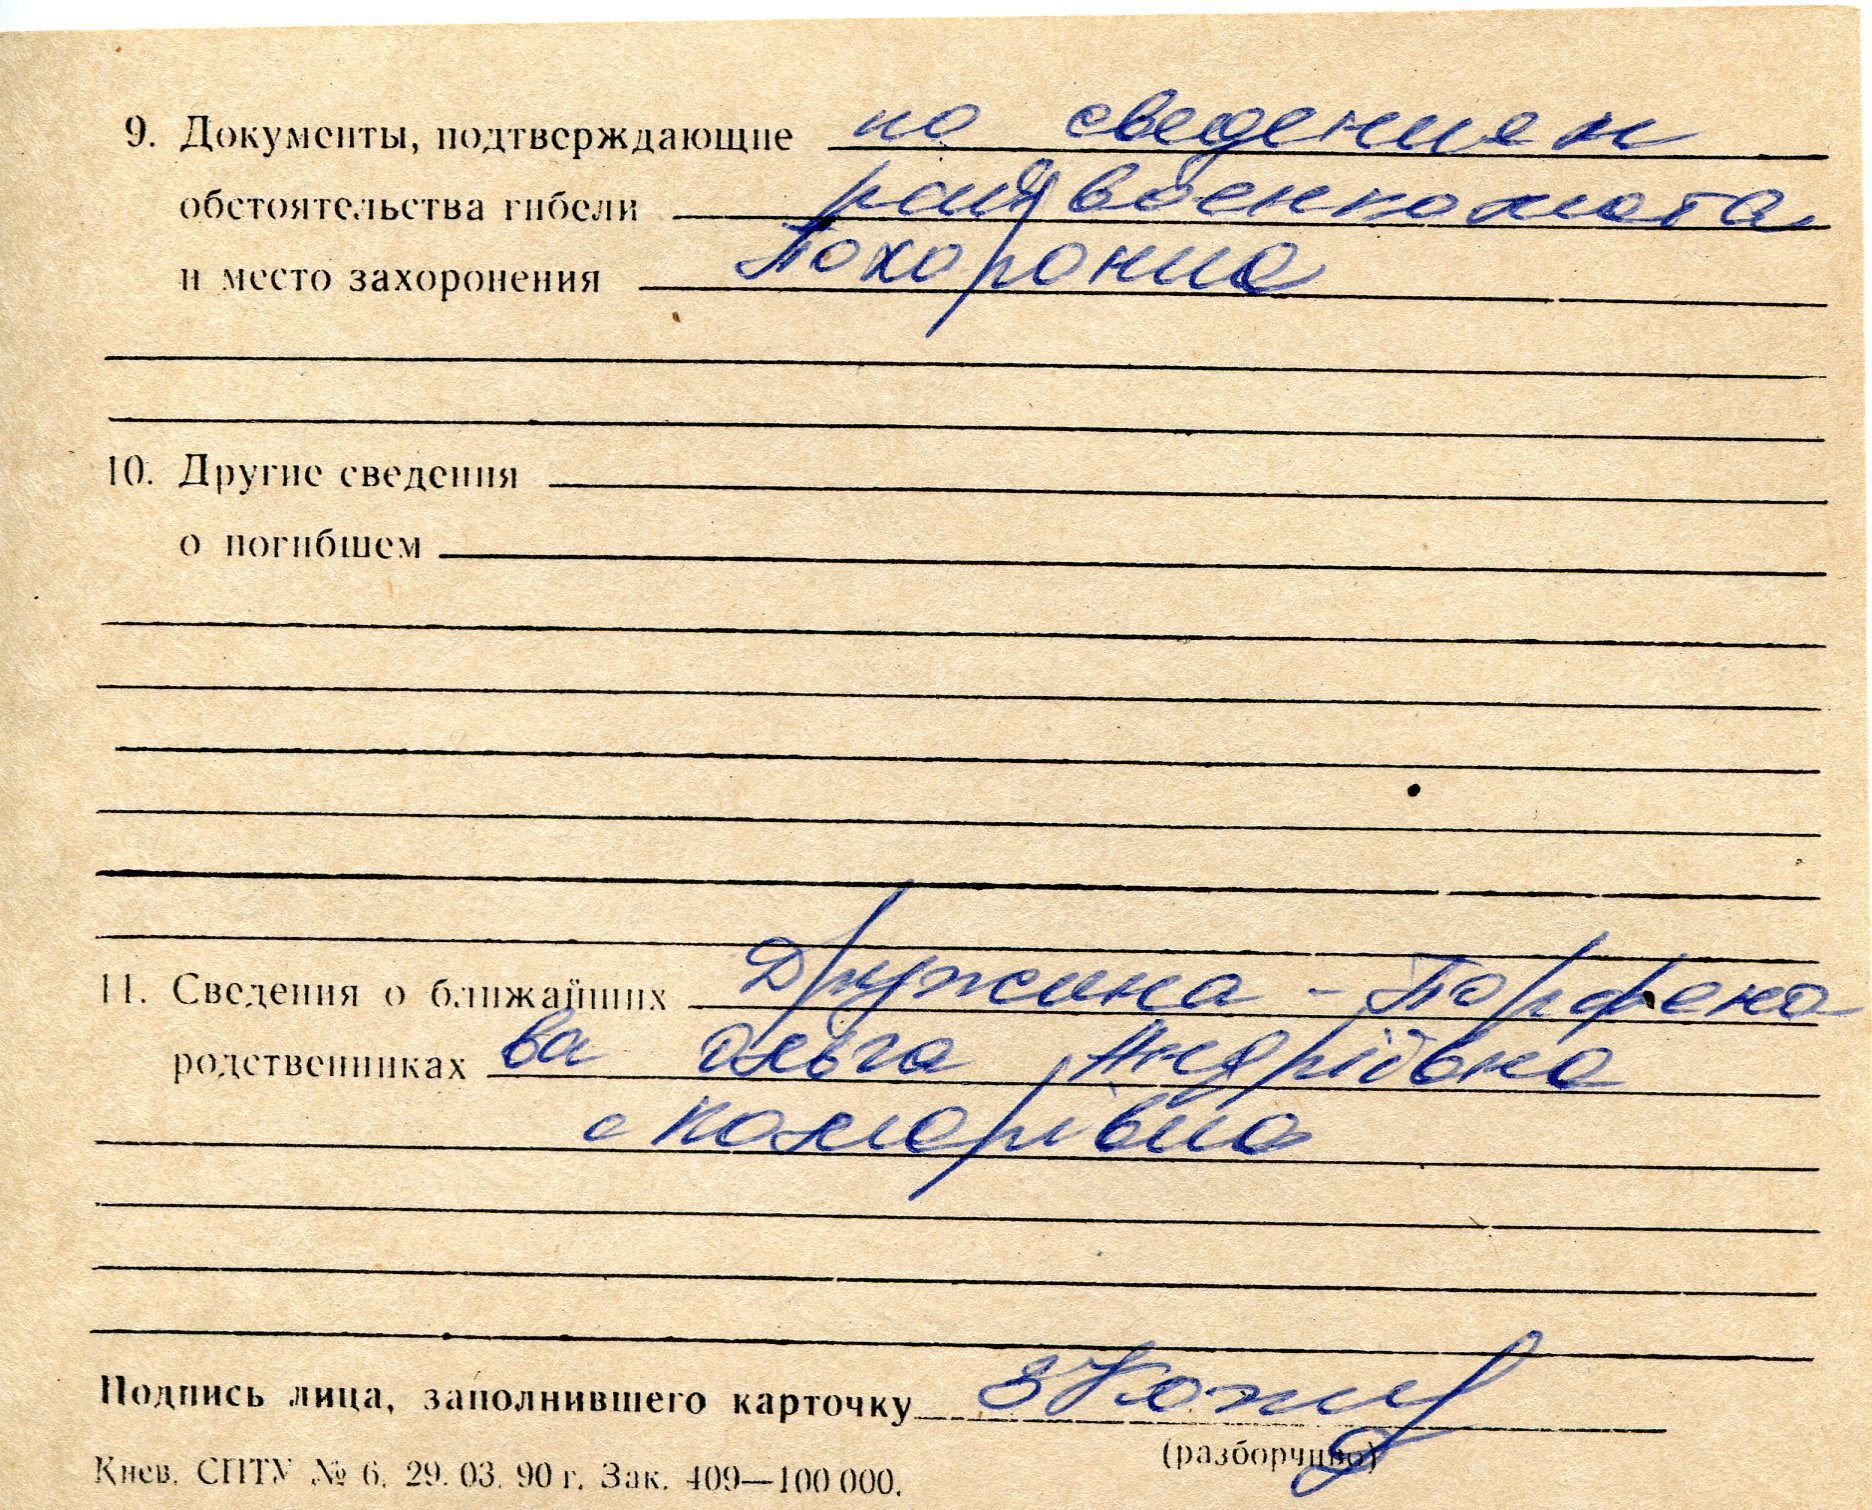 9. Документы, подтверждающие по сведениям
обстоятельства гибели райвоенкомата
и место захоронения Похоронка
10. Другие сведения
о погибшем
11. Сведения о ближайших Дружина - Парфено
родственниках ва Ольга Андріївна
с
Подпись лица, заполнившего карточку
(разборчиво)
Киев. СПТУ № 6. 29. 03. 90 г. Зак. 409—100 000.